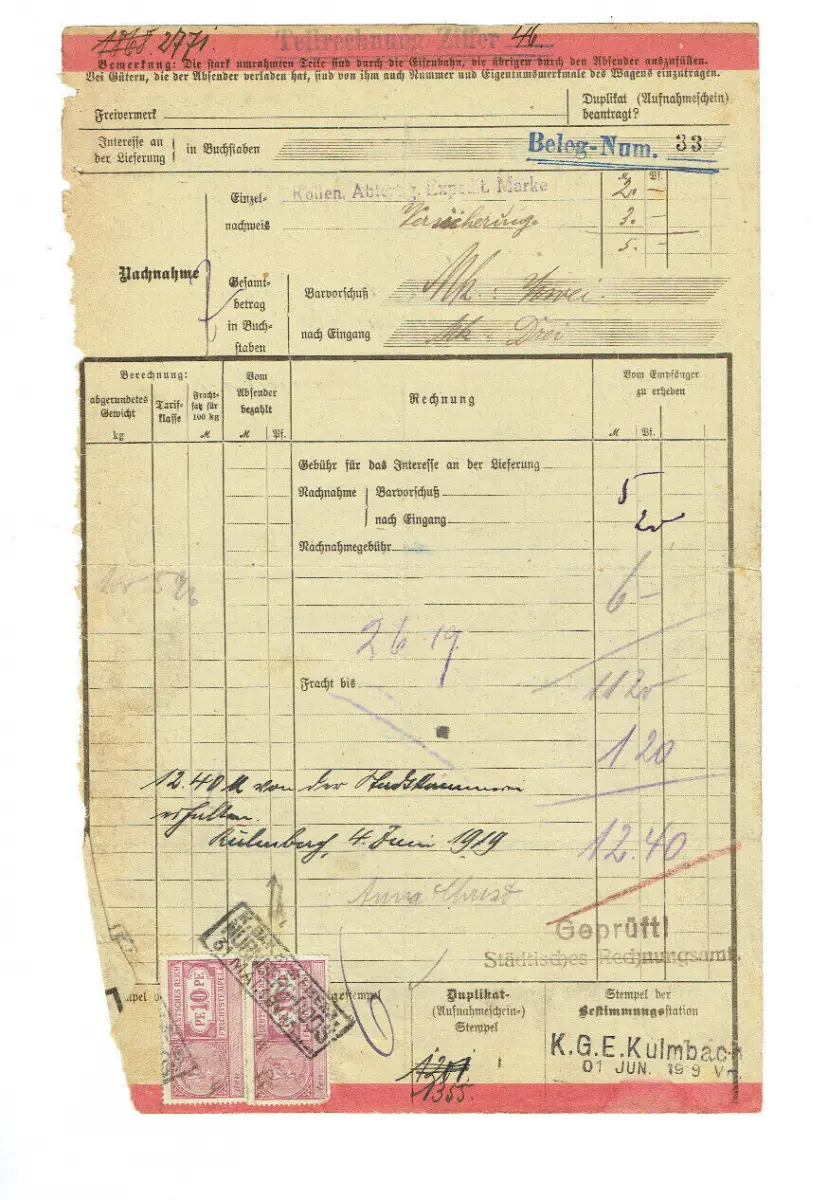 1868. 2771.
Teilrechnung Ziffer 46
Bemerkung: Die stark umrahmten Teile sind durch die Eisenbahn, die übrigen durch den Absender auszufüllen.
Bei Gütern, die der Absender verladen hat, sind von ihm auch Nummer und Eigentumsmerkmale des Wagens einzutragen.
Freivermerk
Duplikat (Aufnahmeschein)
beantragt?
Interesse an
der Lieferung
in Buchstaben
Beleg-Num. 33
M. Pf.
Einzel-
nachweis
Rollen, Expedit. Marke 2. –
Versicherung. 3. –
5. –
Nachnahme
Gesamt-
betrag
in Buch-
staben
Barvorschuß Mk. : Zwei.
nach Eingang Mk : Drei
Berechnung:
abgerundetes
Gewicht
kg
Tarif-
klasse
Fracht-
satz für
100 kg
M
Vom
Absender
bezahlt
M Pf.
Rechnung
Vom Empfänger
zu erheben
M Pf.
Gebühr für das Interesse an der Lieferung
Nachnahme
Barvorschuß 5
nach Eingang 20
Nachnahmegebühr
6 –
2 6 19
Fracht bis 11 20
1 20
12.40 M von der Stadtkämmerei
erhalten.
Kulmbach, 4. Juni 1919
12.40
Anna Christ
Geprüft!
Städtisches Rechnungsamt.
DEUTSCHES REICH
PF. 10 PF.
FRACHTSTEMPEL
NÜRNBERG
31 MAI
Duplikat-
(Aufnahmeschein-)
Stempel
Stempel der
Bestimmungsstation
K.G.E.Kulmbach
01 JUN. 19 9 V
1355.